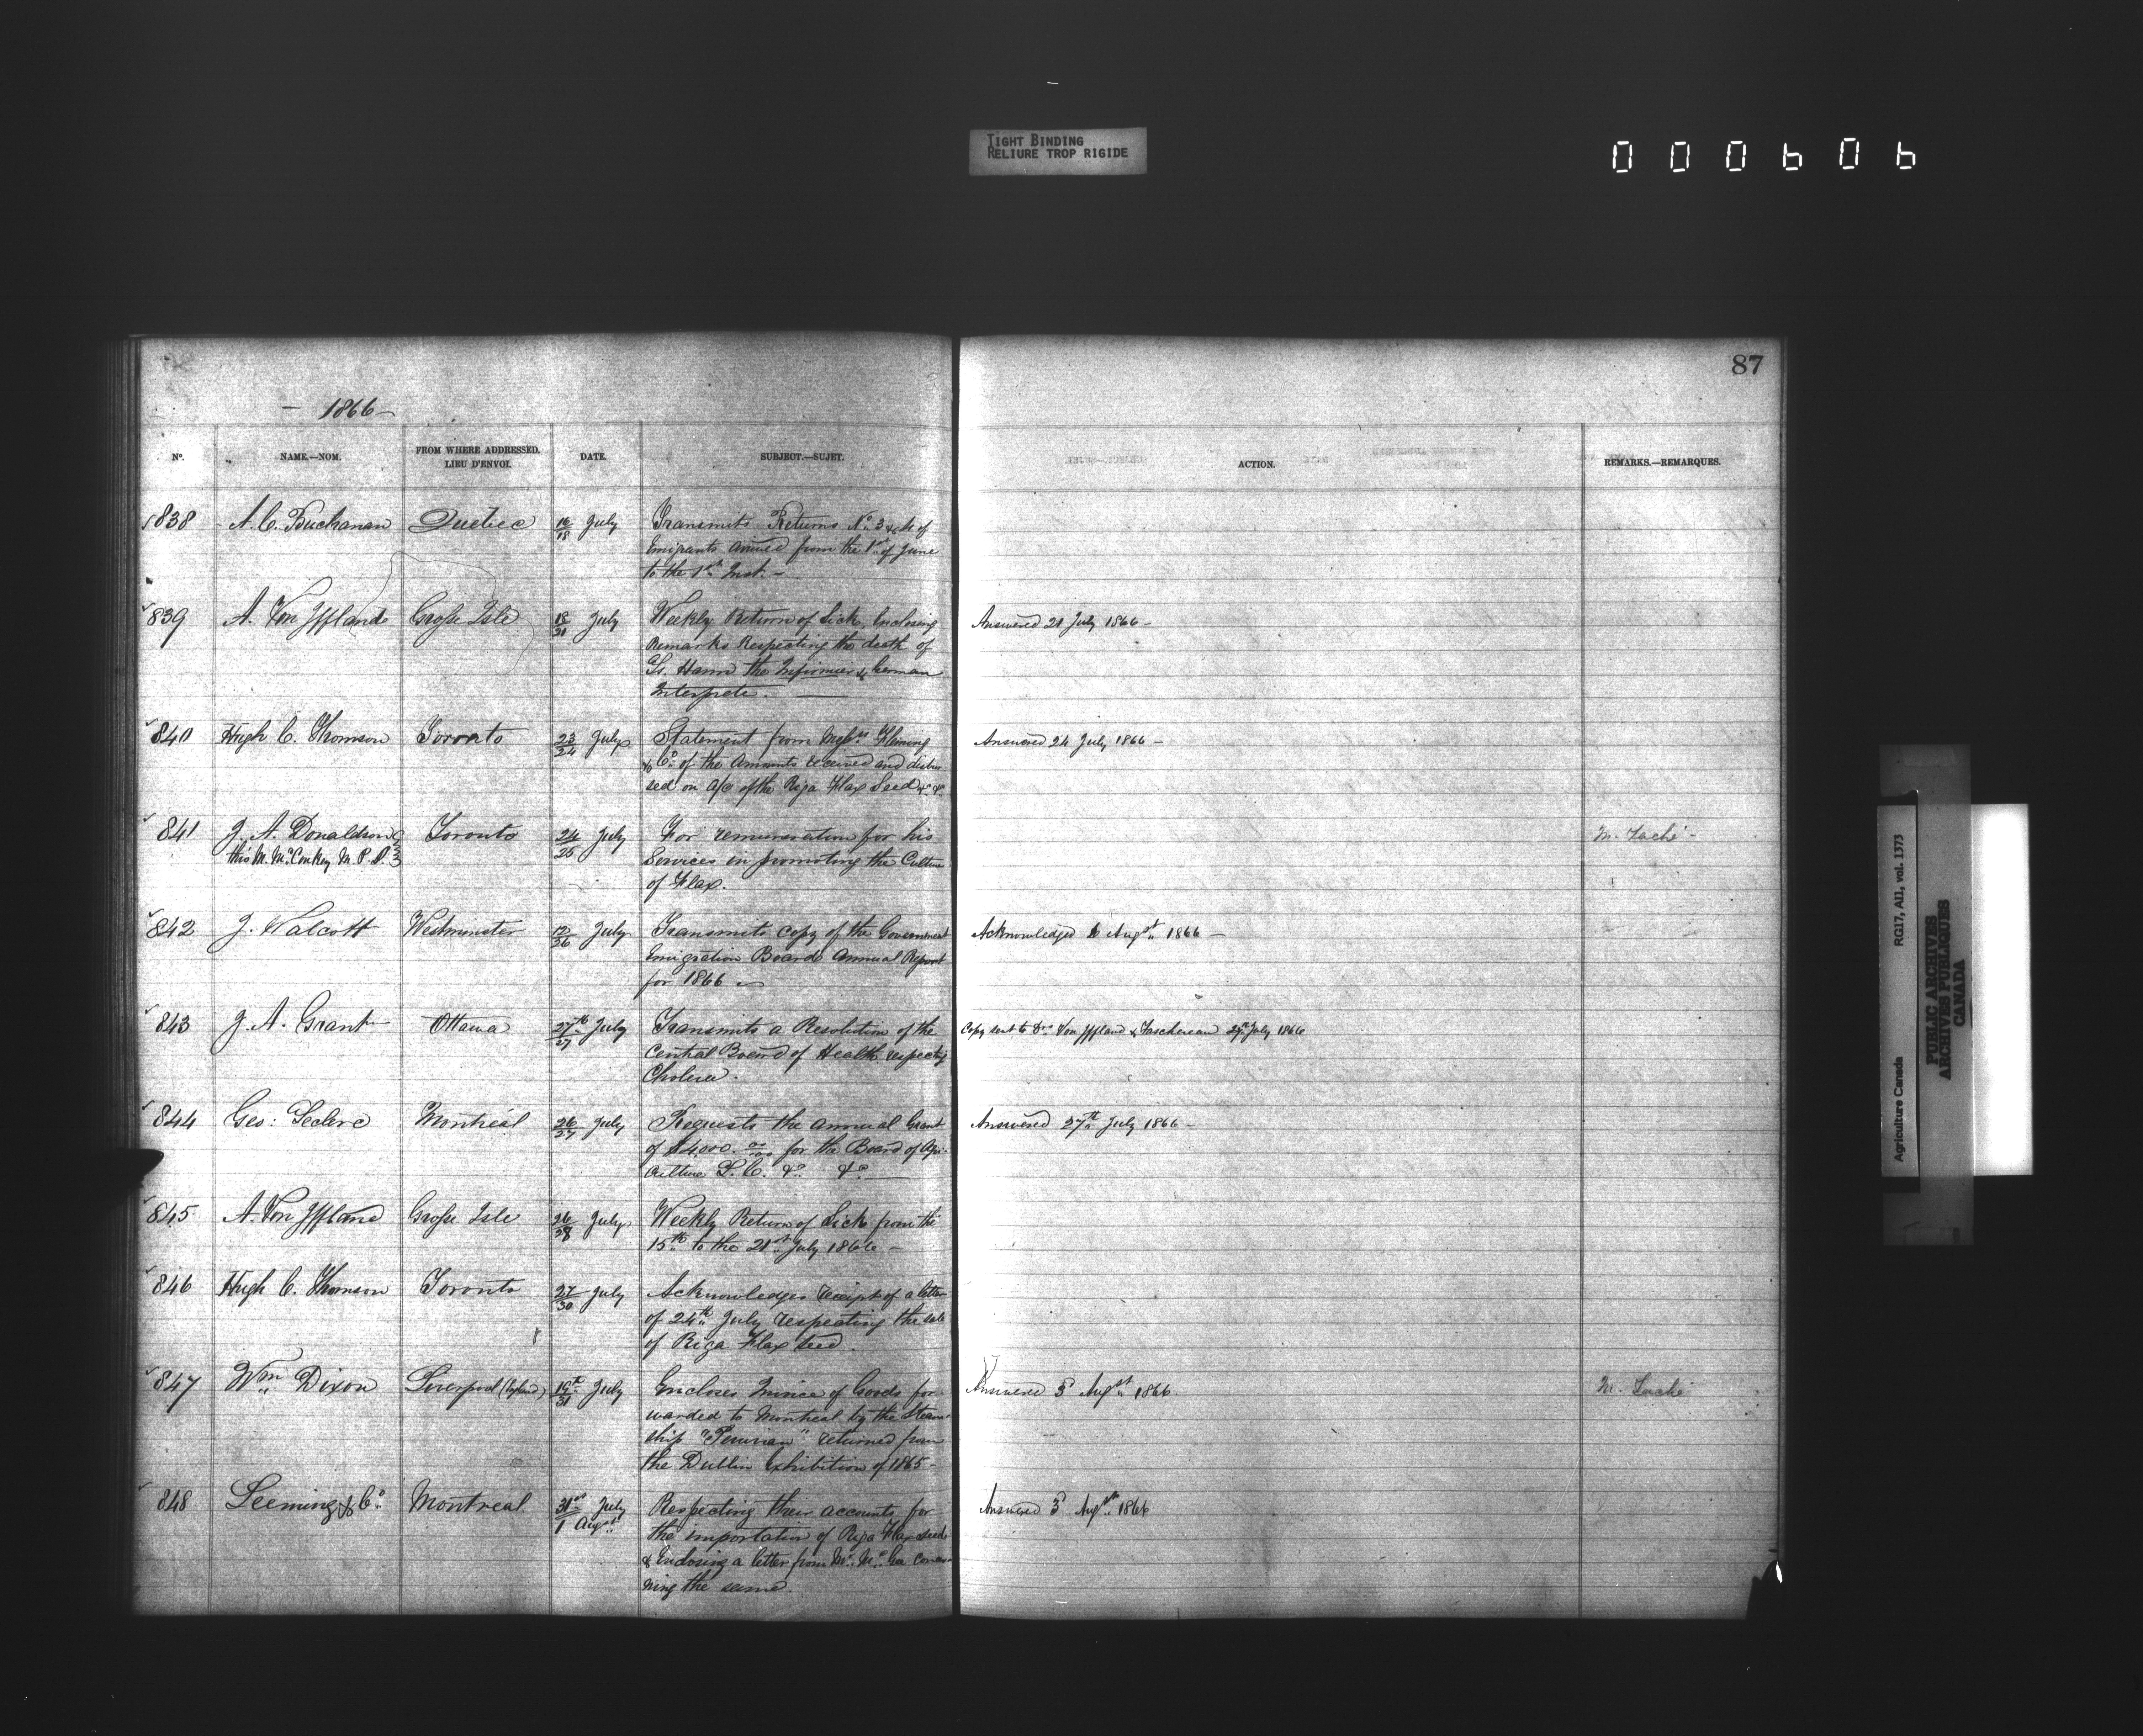 TIGHT BINDING
RELIURE TROP RIGIDE
000606
87
- 1866 -
Nº. NAME.—NOM. FROM WHERE ADDRESSED. LIEU D'ENVOI. DATE. SUBJECT.—SUJET. ACTION. REMARKS.—REMARQUES.
838 A. C. Buchanan Quebec 16/18 July Transmits Returns No. 3 of
Emigrants arrived from the 1st of June
to the 1st Inst. -
839 A. Von Iffland Grosse Isle 18/21 July Weekly Return of Sick, Enclosing Answered 21 July 1866 -
Remarks Respecting the death of
Hann the Infirmier & German
Interprete.
840 Hugh C. Thomson Toronto 23/24 July Statement from Messrs Fleming Answered 24 July 1866 -
& Co. of the Amounts received and disbur-
sed on a/c of the Riga Flax Seed &c &c
841 J. A. Donaldson Toronto 24/25 July For remuneration for his M. Taché -
this M. McConkey M. P. P. Services in promoting the Culture
of Flax.
842 J. Walcott Westminster 12/26 July Transmits copy of the Government Acknowledged 6 Augst 1866 -
Emigration Boards Annual Report
for 1866
843 J. A. Grant Ottawa 27th/27 July Transmits a Resolution of the Copy sent to Drs Von Iffland & Taschereau 27th July 1866
Central Board of Health respectg
Cholera.
844 Geo: Leclerc Montréal 26/27 July Requests the annual Grant Answered 27th July 1866 -
of $4,000. 00/00 for the Board of Agri-
culture L. C. &c &c
845 A. Von Iffland Grosse Isle 26/28 July Weekly Return of Sick from the
15th to the 21st July 1866 -
846 Hugh C. Thomson Toronto 27/30 July Acknowledges receipt of a letter
of 24th July respecting the sale
of Riga Flax seed.
847 Wm Dixon Liverpool (England) 19th/31 July Encloses Invoice of Goods for- Answered 3d Augst 1866. M. Taché
warded to Montreal by the Steam-
ship "Peruvian" returned from
the Dublin Exhibition of 1865 -
848 Leeming & Co. Montreal 31st July/1 Augst Respecting their accounts for Answered 3d Augst 1866
the importation of Riga Flax seed
& Enclosing a letter from Mr. McGee concer-
ning the same.
Agriculture Canada RG17, AII, vol. 1373
PUBLIC ARCHIVES
ARCHIVES PUBLIQUES
CANADA